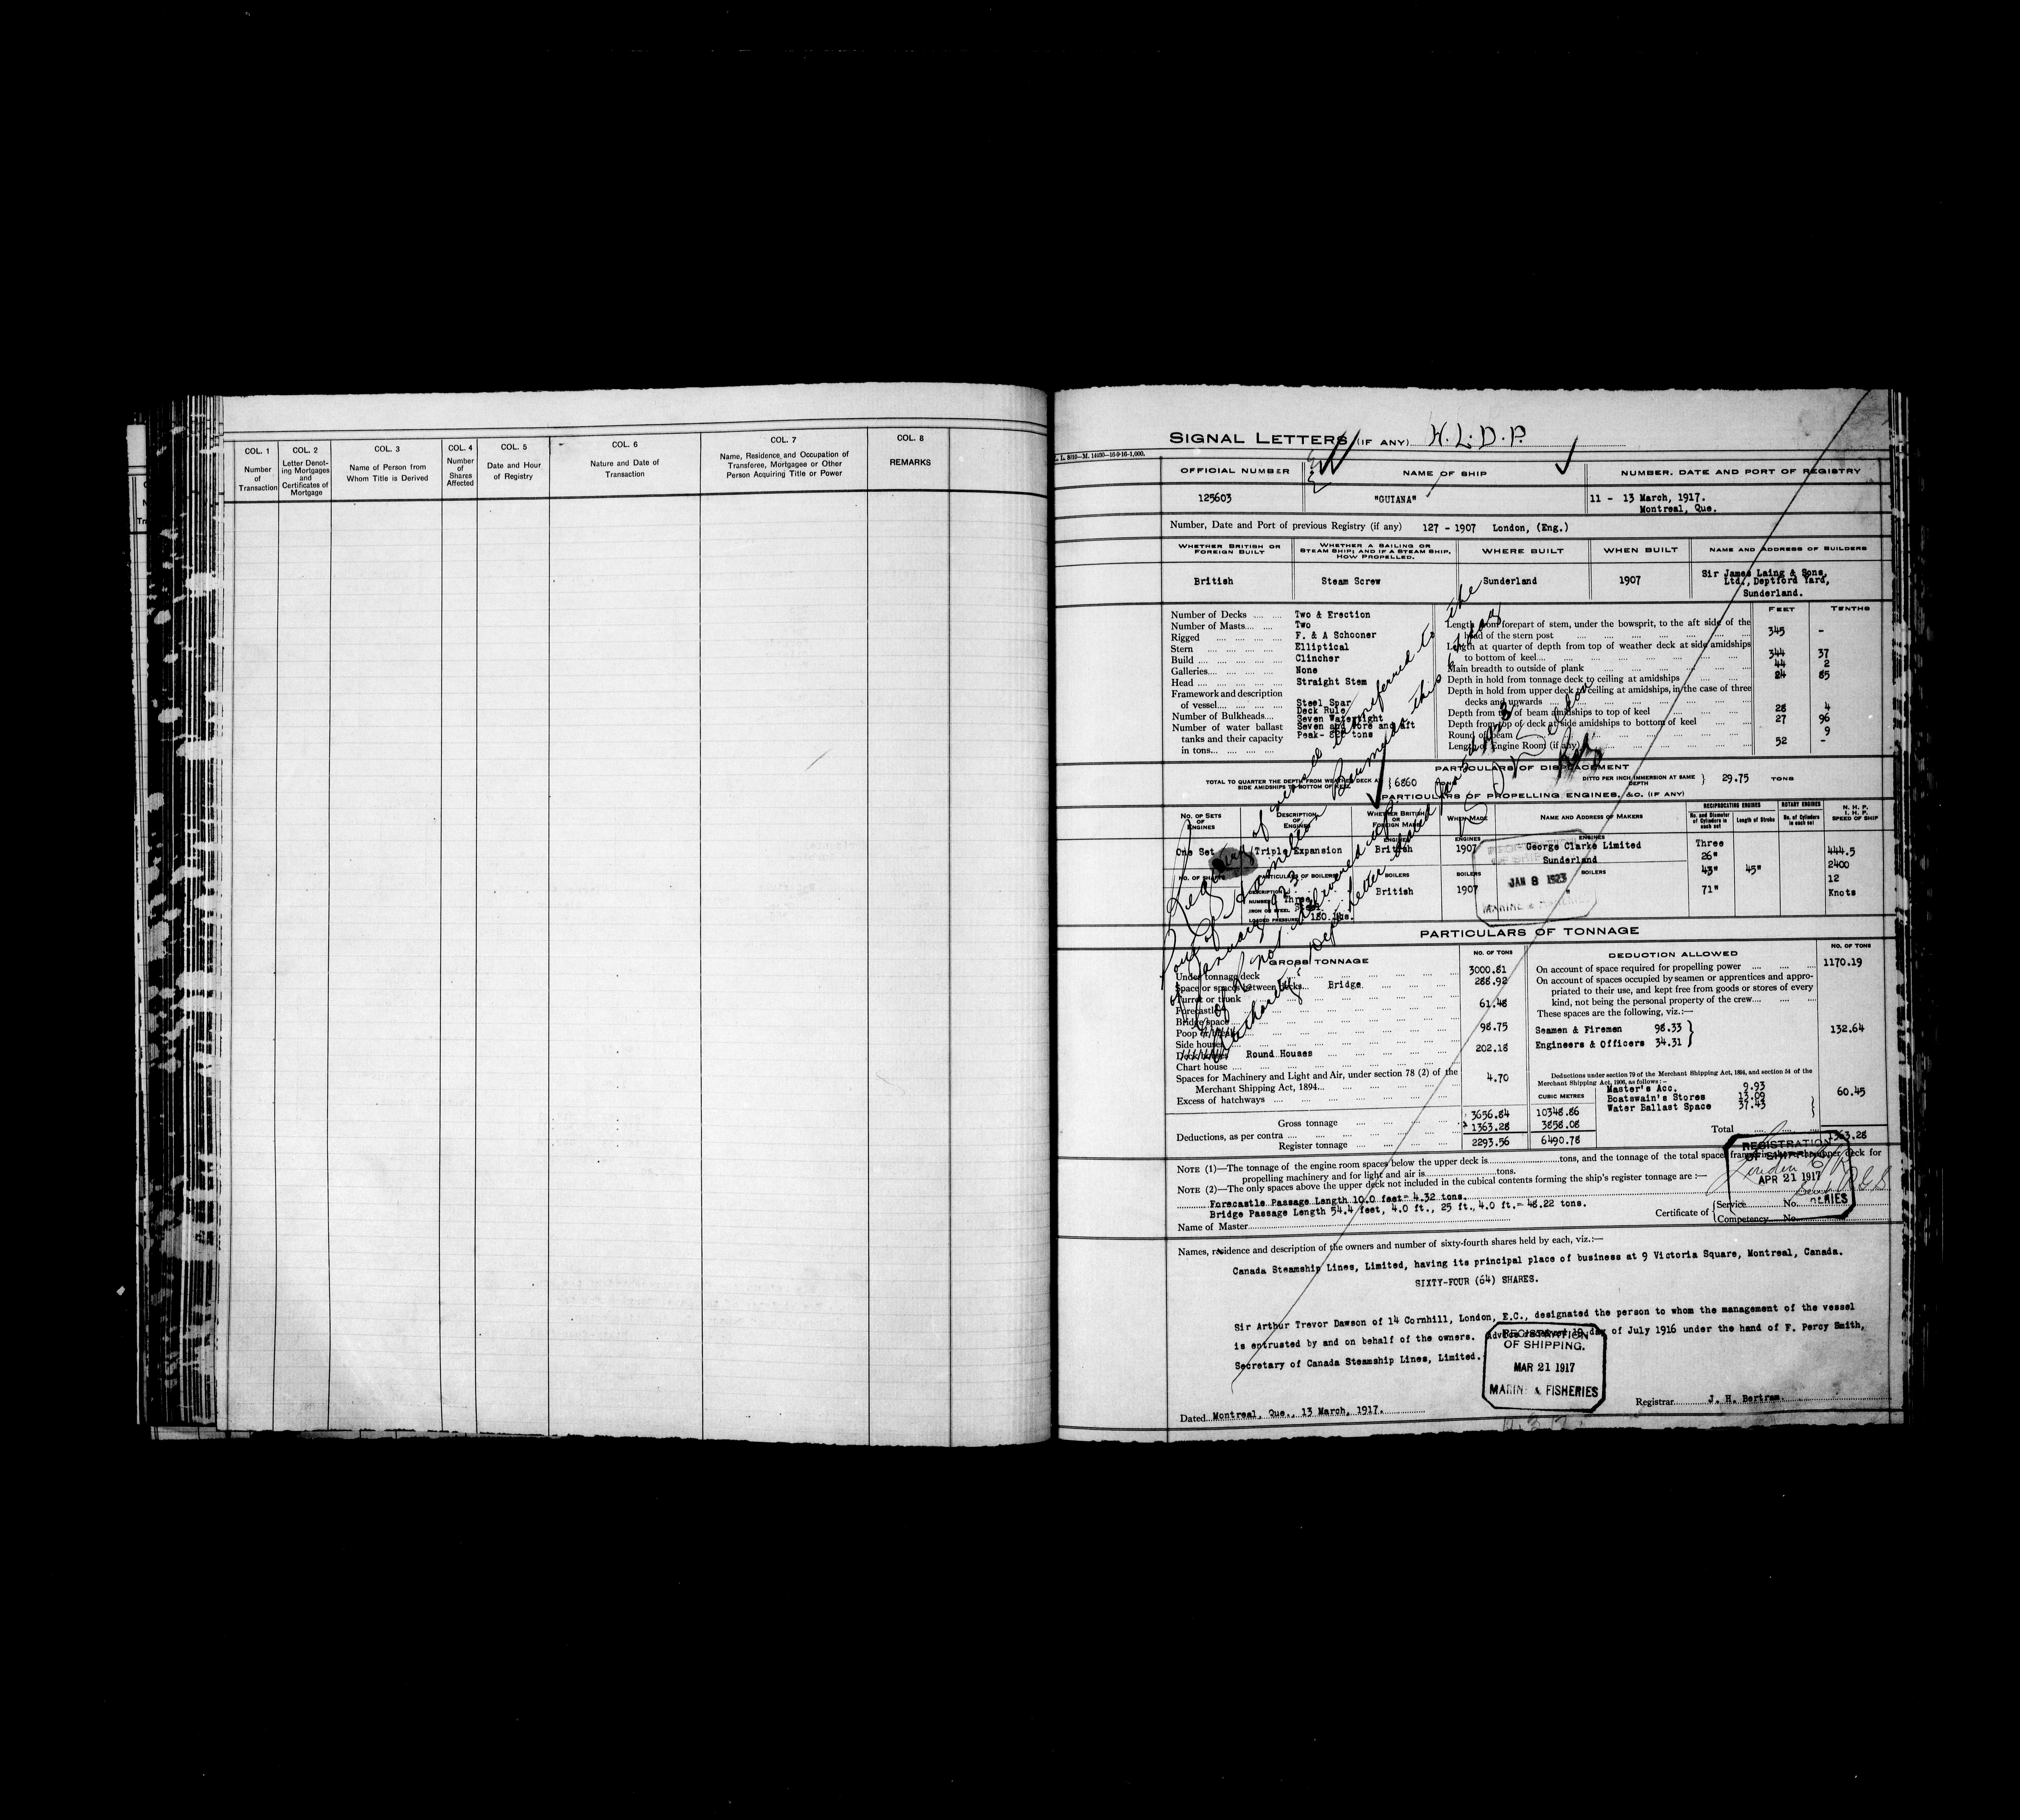 COL. 1
Number
of
Transaction
COL. 2
Letter Denot-
ing Mortgages
and
Certificates of
Mortgage
COL. 3
Name of Person from
Whom Title is Derived
COL. 4
Number
of
Shares
Affected
COL. 5
Date and Hour
of Registry
COL. 6
Nature and Date of
Transaction
COL. 7
Name, Residence, and Occupation of
Transferee, Mortgagee or Other
Person Acquiring Title or Power
COL. 8
REMARKS
SIGNAL LETTERS (IF ANY) H.L.D.P.
OFFICIAL NUMBER
NAME OF SHIP
NUMBER, DATE AND PORT OF REGISTRY
125603
"GUIANA"
11 - 13 March, 1917.
Montreal, Que.
Number, Date and Port of previous Registry (if any) 127 - 1907 London, (Eng.)
WHETHER BRITISH OR
FOREIGN BUILT
WHETHER A SAILING OR
STEAM SHIP; AND IF A STEAM SHIP,
HOW PROPELLED.
WHERE BUILT
WHEN BUILT
NAME AND ADDRESS OF BUILDERS
British
Steam Screw
Sunderland
1907
Sir James Laing & Sons,
Ltd., Deptford Yard,
Sunderland.
Number of Decks .... .... Two & Erection
Number of Masts.... .... Two
Rigged .... .... .... .... F. & A Schooner
Stern .... .... .... .... Elliptical
Build .... .... .... .... Clincher
Galleries.... .... .... .... None
Head .... .... .... .... Straight Stem
Framework and description
of vessel.... .... .... Steel Spar
Deck Rule
Number of Bulkheads.... Seven Watertight
Number of water ballast Seven and Fore and Aft
tanks and their capacity Peak- tons
in tons... .... ....
FEET
TENTHS
Length from forepart of stem, under the bowsprit, to the aft side of the
head of the stern post 345 -
Length at quarter of depth from top of weather deck at side amidships
to bottom of keel.... 344 37
Main breadth to outside of plank 44 2
Depth in hold from tonnage deck to ceiling at amidships 24 85
Depth in hold from upper deck to ceiling at amidships, in the case of three
decks and upwards
Depth from top of beam amidships to top of keel 28 4
Depth from top of deck at side amidships to bottom of keel 27 96
Round of beam 9
Length of Engine Room (if any) 52 -
PARTICULARS OF DISPLACEMENT
TOTAL TO QUARTER THE DEPTH FROM WEATHER DECK AT
SIDE AMIDSHIPS TO BOTTOM OF KEEL } 6860 TONS
DITTO PER INCH IMMERSION AT SAME
DEPTH } 29.75 TONS
PARTICULARS OF PROPELLING ENGINES, &C. (IF ANY)
NO. OF SETS
OF
ENGINES
DESCRIPTION
OF
ENGINES
WHETHER BRITISH
OR
FOREIGN MADE
WHEN MADE
NAME AND ADDRESS OF MAKERS
RECIPROCATING ENGINES
No. and Diameter
of Cylinders in
each set
Length of Stroke
ROTARY ENGINES
No. of Cylinders
in each set
N. H. P.
I. H. P.
SPEED OF SHIP
ENGINES
ENGINES
ENGINES
One Set
Triple Expansion
British
1907
George Clarke Limited
Sunderland
Three
26"
43"
71"
45"
444.5
2400
12
Knots
NO. OF SHAFTS
PARTICULARS OF BOILERS
BOILERS
BOILERS
BOILERS
DESCRIPTION
NUMBER Three
IRON OR STEEL Steel
LOADED PRESSURE 180 lbs.
British
1907
"
JAN 8 1923
MARINE & FISHERIES
Registry of vessel transferred to the
Port of Hamilton Bermuda this 6 day
of January 1923
C of R not delivered up
Authority: Dep. letter dated Jan 3rd 1923
PARTICULARS OF TONNAGE
GROSS TONNAGE
NO. OF TONS
DEDUCTION ALLOWED
NO. OF TONS
Under tonnage deck 3000.81
Space or spaces between decks.... Bridge 288.92
Turret or trunk
Forecastle 61.48
Bridge space
Poop or break 98.75
Side houses
Deck houses Round Houses 202.18
Chart house
Spaces for Machinery and Light and Air, under section 78 (2) of the
Merchant Shipping Act, 1894... 4.70
Excess of hatchways
Gross tonnage 3656.84
Deductions, as per contra 1363.28
Register tonnage 2293.56
CUBIC METRES
10348.86
3858.08
6490.78
On account of space required for propelling power 1170.19
On account of spaces occupied by seamen or apprentices and appro-
priated to their use, and kept free from goods or stores of every
kind, not being the personal property of the crew....
These spaces are the following, viz.:—
Seamen & Firemen 98.33
Engineers & Officers 34.31 } 132.64
Deductions under section 79 of the Merchant Shipping Act, 1894, and section 54 of the
Merchant Shipping Act, 1906, as follows:—
Master's Acc. 9.93
Boatswain's Stores 13.09
Water Ballast Space 37.43 } 60.45
Total 1363.28
NOTE (1)—The tonnage of the engine room spaces below the upper deck is tons, and the tonnage of the total spaces framed in above the upper deck for
propelling machinery and for light and air is tons.
NOTE (2)—The only spaces above the upper deck not included in the cubical contents forming the ship's register tonnage are:—
Forecastle Passage Length 10.0 feet= 4.32 tons.
Bridge Passage Length 54.4 feet, 4.0 ft., 25 ft., 4.0 ft.= 48.22 tons.
REGISTRATION
OF SHIPPING
APR 21 1917
Name of Master
Certificate of { Service No.
Competency No.
Names, residence and description of the owners and number of sixty-fourth shares held by each, viz.:—
Canada Steamship Lines, Limited, having its principal place of business at 9 Victoria Square, Montreal, Canada.
SIXTY-FOUR (64) SHARES.
Sir Arthur Trevor Dawson of 14 Cornhill, London, E.C., designated the person to whom the management of the vessel
is entrusted by and on behalf of the owners. Advice received 19 day of July 1916 under the hand of F. Percy Smith,
Secretary of Canada Steamship Lines, Limited.
REGISTRATION
OF SHIPPING.
MAR 21 1917
MARINE & FISHERIES
Dated Montreal, Que., 13 March, 1917.
Registrar J. H. Bertram.